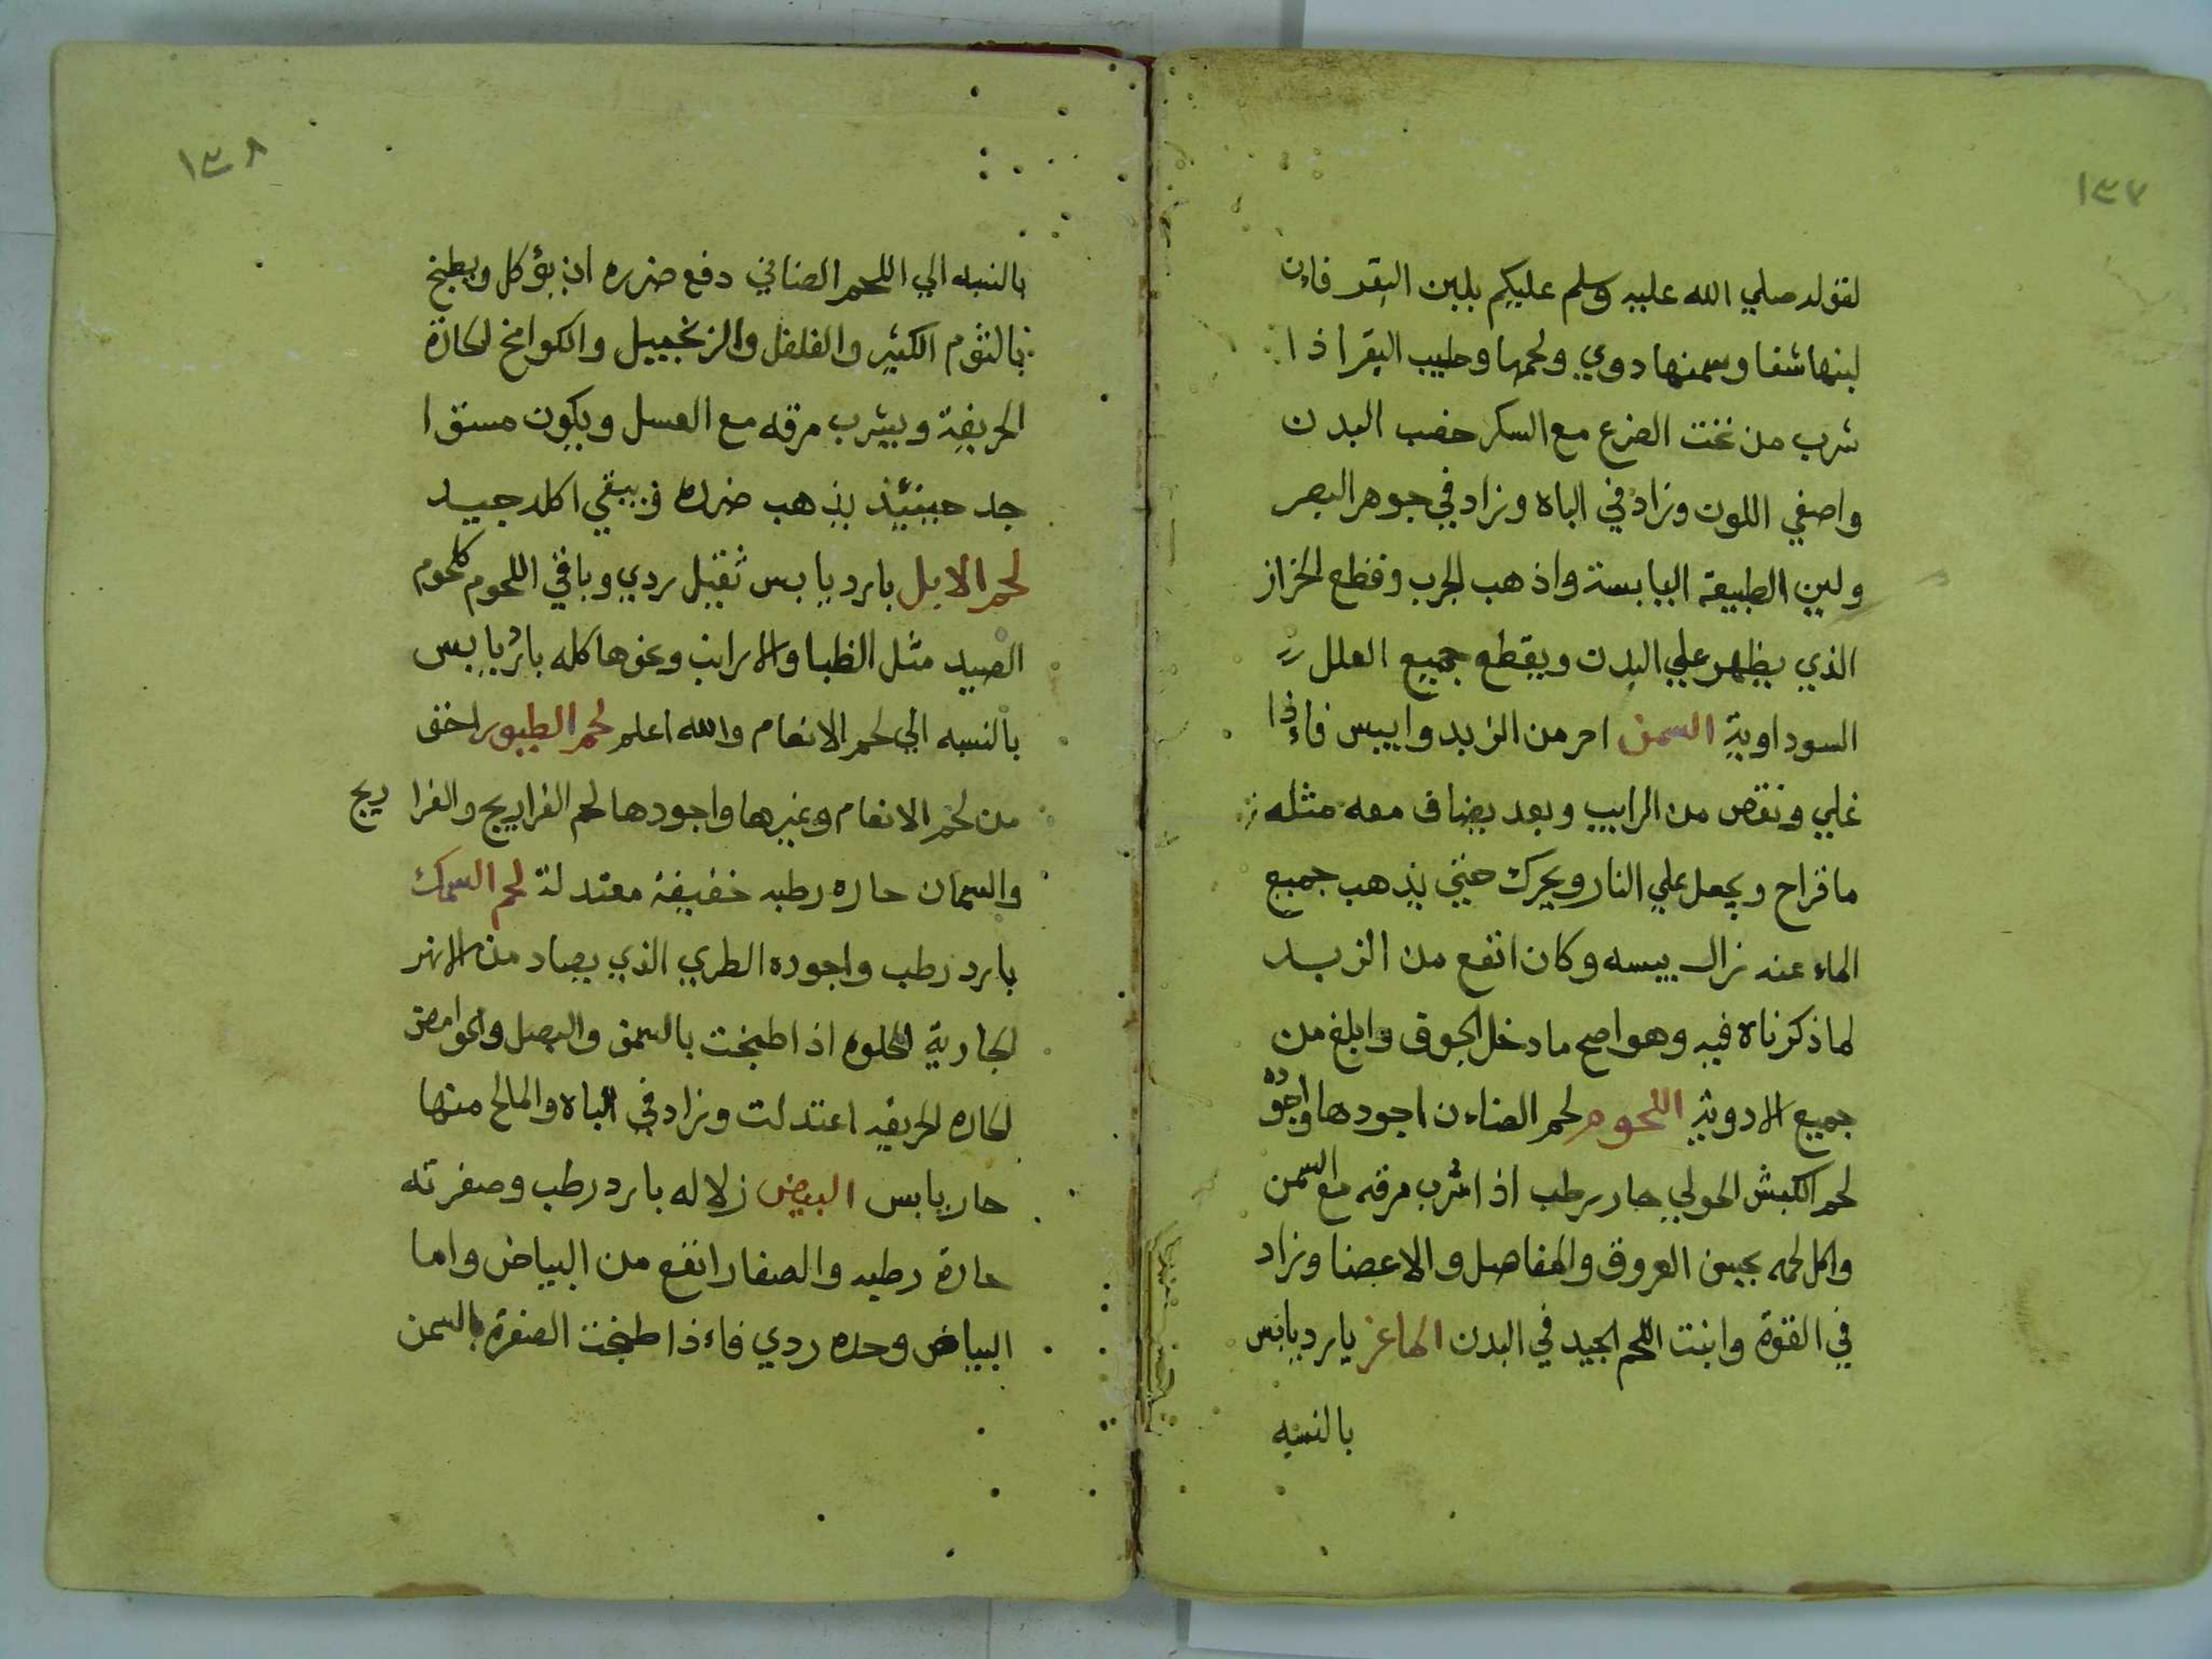 ١٣٧
لقوله صلي الله عليه وسلم عليكم بلبن البقر فاءن
لبنها شفا وسمنها دوي ولحمها وحليب البقر اذا
شرب من تحت الضرع مع السكر خصب البدن
واصفي اللون وزاد في الباه وزاد في جوهر البصر
ولين الطبيعة اليابسة واذهب الجرب وقطع الحزاز
الذي يظهر علي البدن ويقطع جميع العلل
السوداوية السمن احر من الزبد وايبس فاءذا
غلي ونقص من الرايب وبعد يضاف معه مثله
ما قراح ويجعل علي النار ويحرك حتي يذهب جميع
الماء عنه زال يبسه وكان انفع من الزبد
لما ذكرناه فيه وهو اصح ما دخل الجوف وابلغ من
جميع الادوية اللحوم لحم الضاءن اجودها واجوده
لحم الكبش الحولي حار رطب اذا شرب مرقه مع السمن
واكل لحمه يحيي العروق والمفاصل والاعضا وزاد
في القوة وانبت اللحم الجيد في البدن الماعز بارد يابس
بالنسبه
١٣٨
بالنسبه الي اللحم الضاني دفع ضرره ان يؤكل ويطبخ
بالثوم الكثير والفلفل والزنجبيل والكوامخ الحارة
الحريفة ويشرب مرقه مع العسل ويكون مستوا
جد حينئيذ يذهب ضرره ويبقي اكله جيد
لحم الابل بارد يابس ثقيل ردي وباقي اللحوم كلحوم
الصيد مثل الظبا والارانب ونحوها كله بارد يابس
بالنسبه الي لحم الانعام والله اعلم لحم الطيور اخف
من لحم الانعام وغيرها واجودها لحم الفراريج والفرا ريج
والسمان حاره رطبه خفيفة معتدلة لحم السمك
بارد رطب واجوده الطري الذي يصاد من الانهر
الجارية الحلوه اذا طبخت بالسمن والبصل والحوامض
الحاره الحريفه اعتدلت وزاد في الباه والمالح منها
حار يابس البيض زلاله بارد رطب وصفرته
حارة رطبه والصفار انفع من البياض واما
البياض وحده ردي فاءذا طبخت الصفرة بالسمن